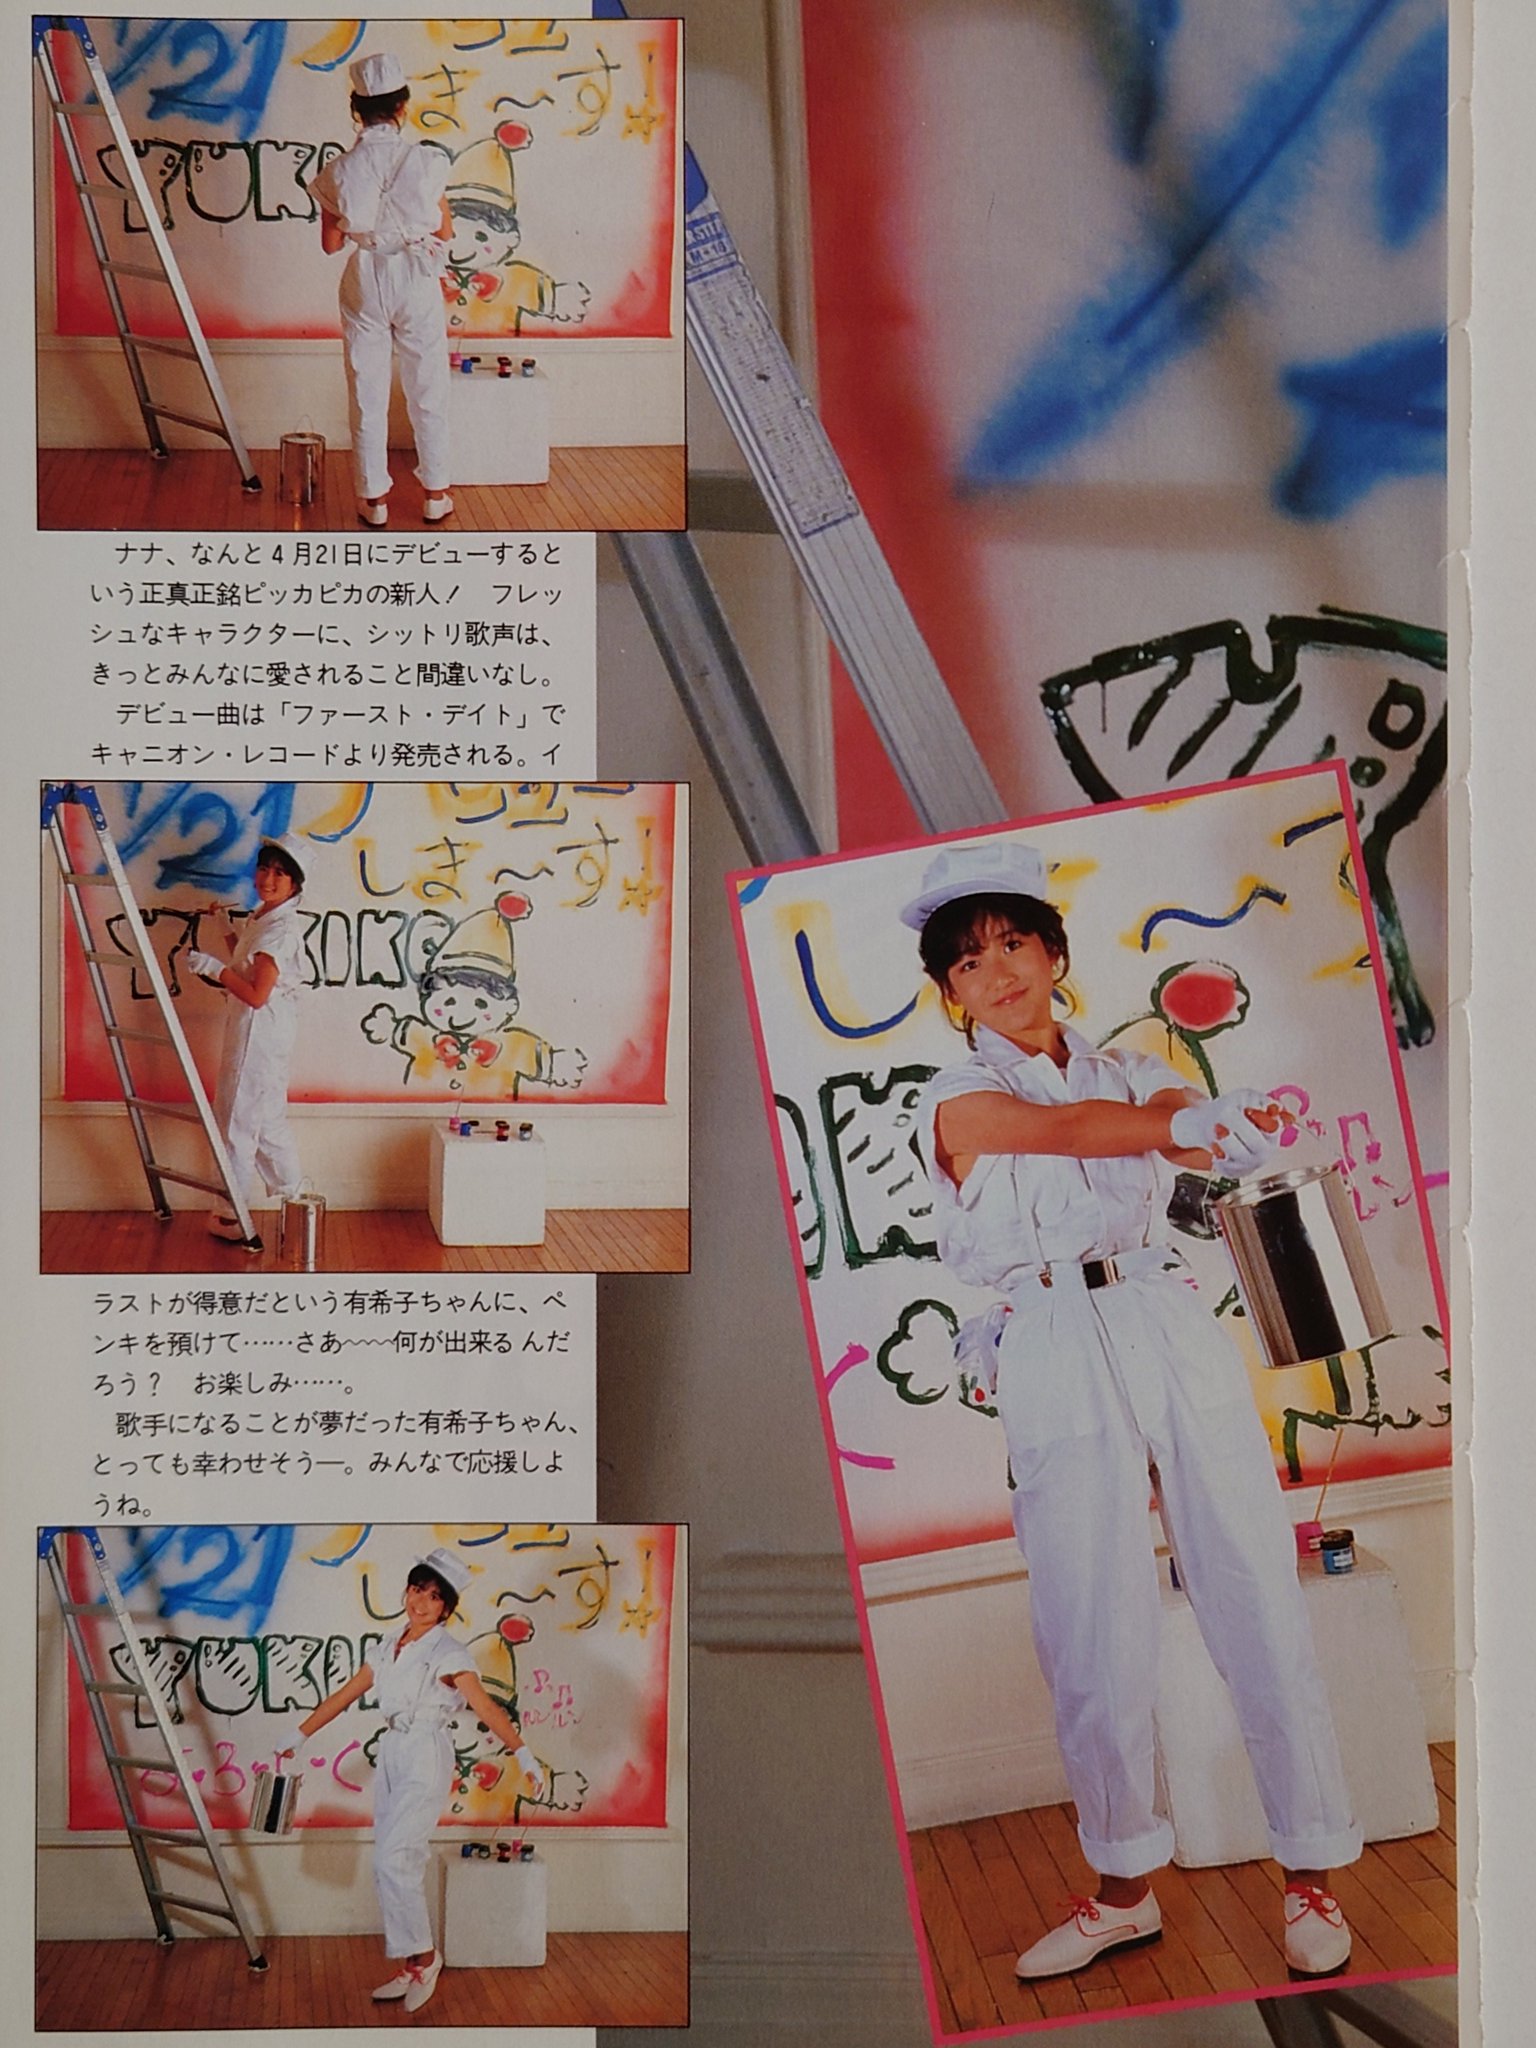 1/21
しま〜す!
YUKI
ナナ、なんと4月21日にデビューすると
いう正真正銘ピッカピカの新人! フレッ
シュなキャラクターに、シットリ歌声は、
きっとみんなに愛されること間違いなし。
デビュー曲は「ファースト・デイト」で
キャニオン・レコードより発売される。イ
/21
しま〜す!
YUKIKO
ラストが得意だという有希子ちゃんに、ペ
ンキを預けて……さあ〜〜〜何が出来るんだ
ろう? お楽しみ……。
歌手になることが夢だった有希子ちゃん、
とっても幸わせそう—。みんなで応援しよ
うね。
/21
し
〜す!
YUKIK
M-18
し
〜